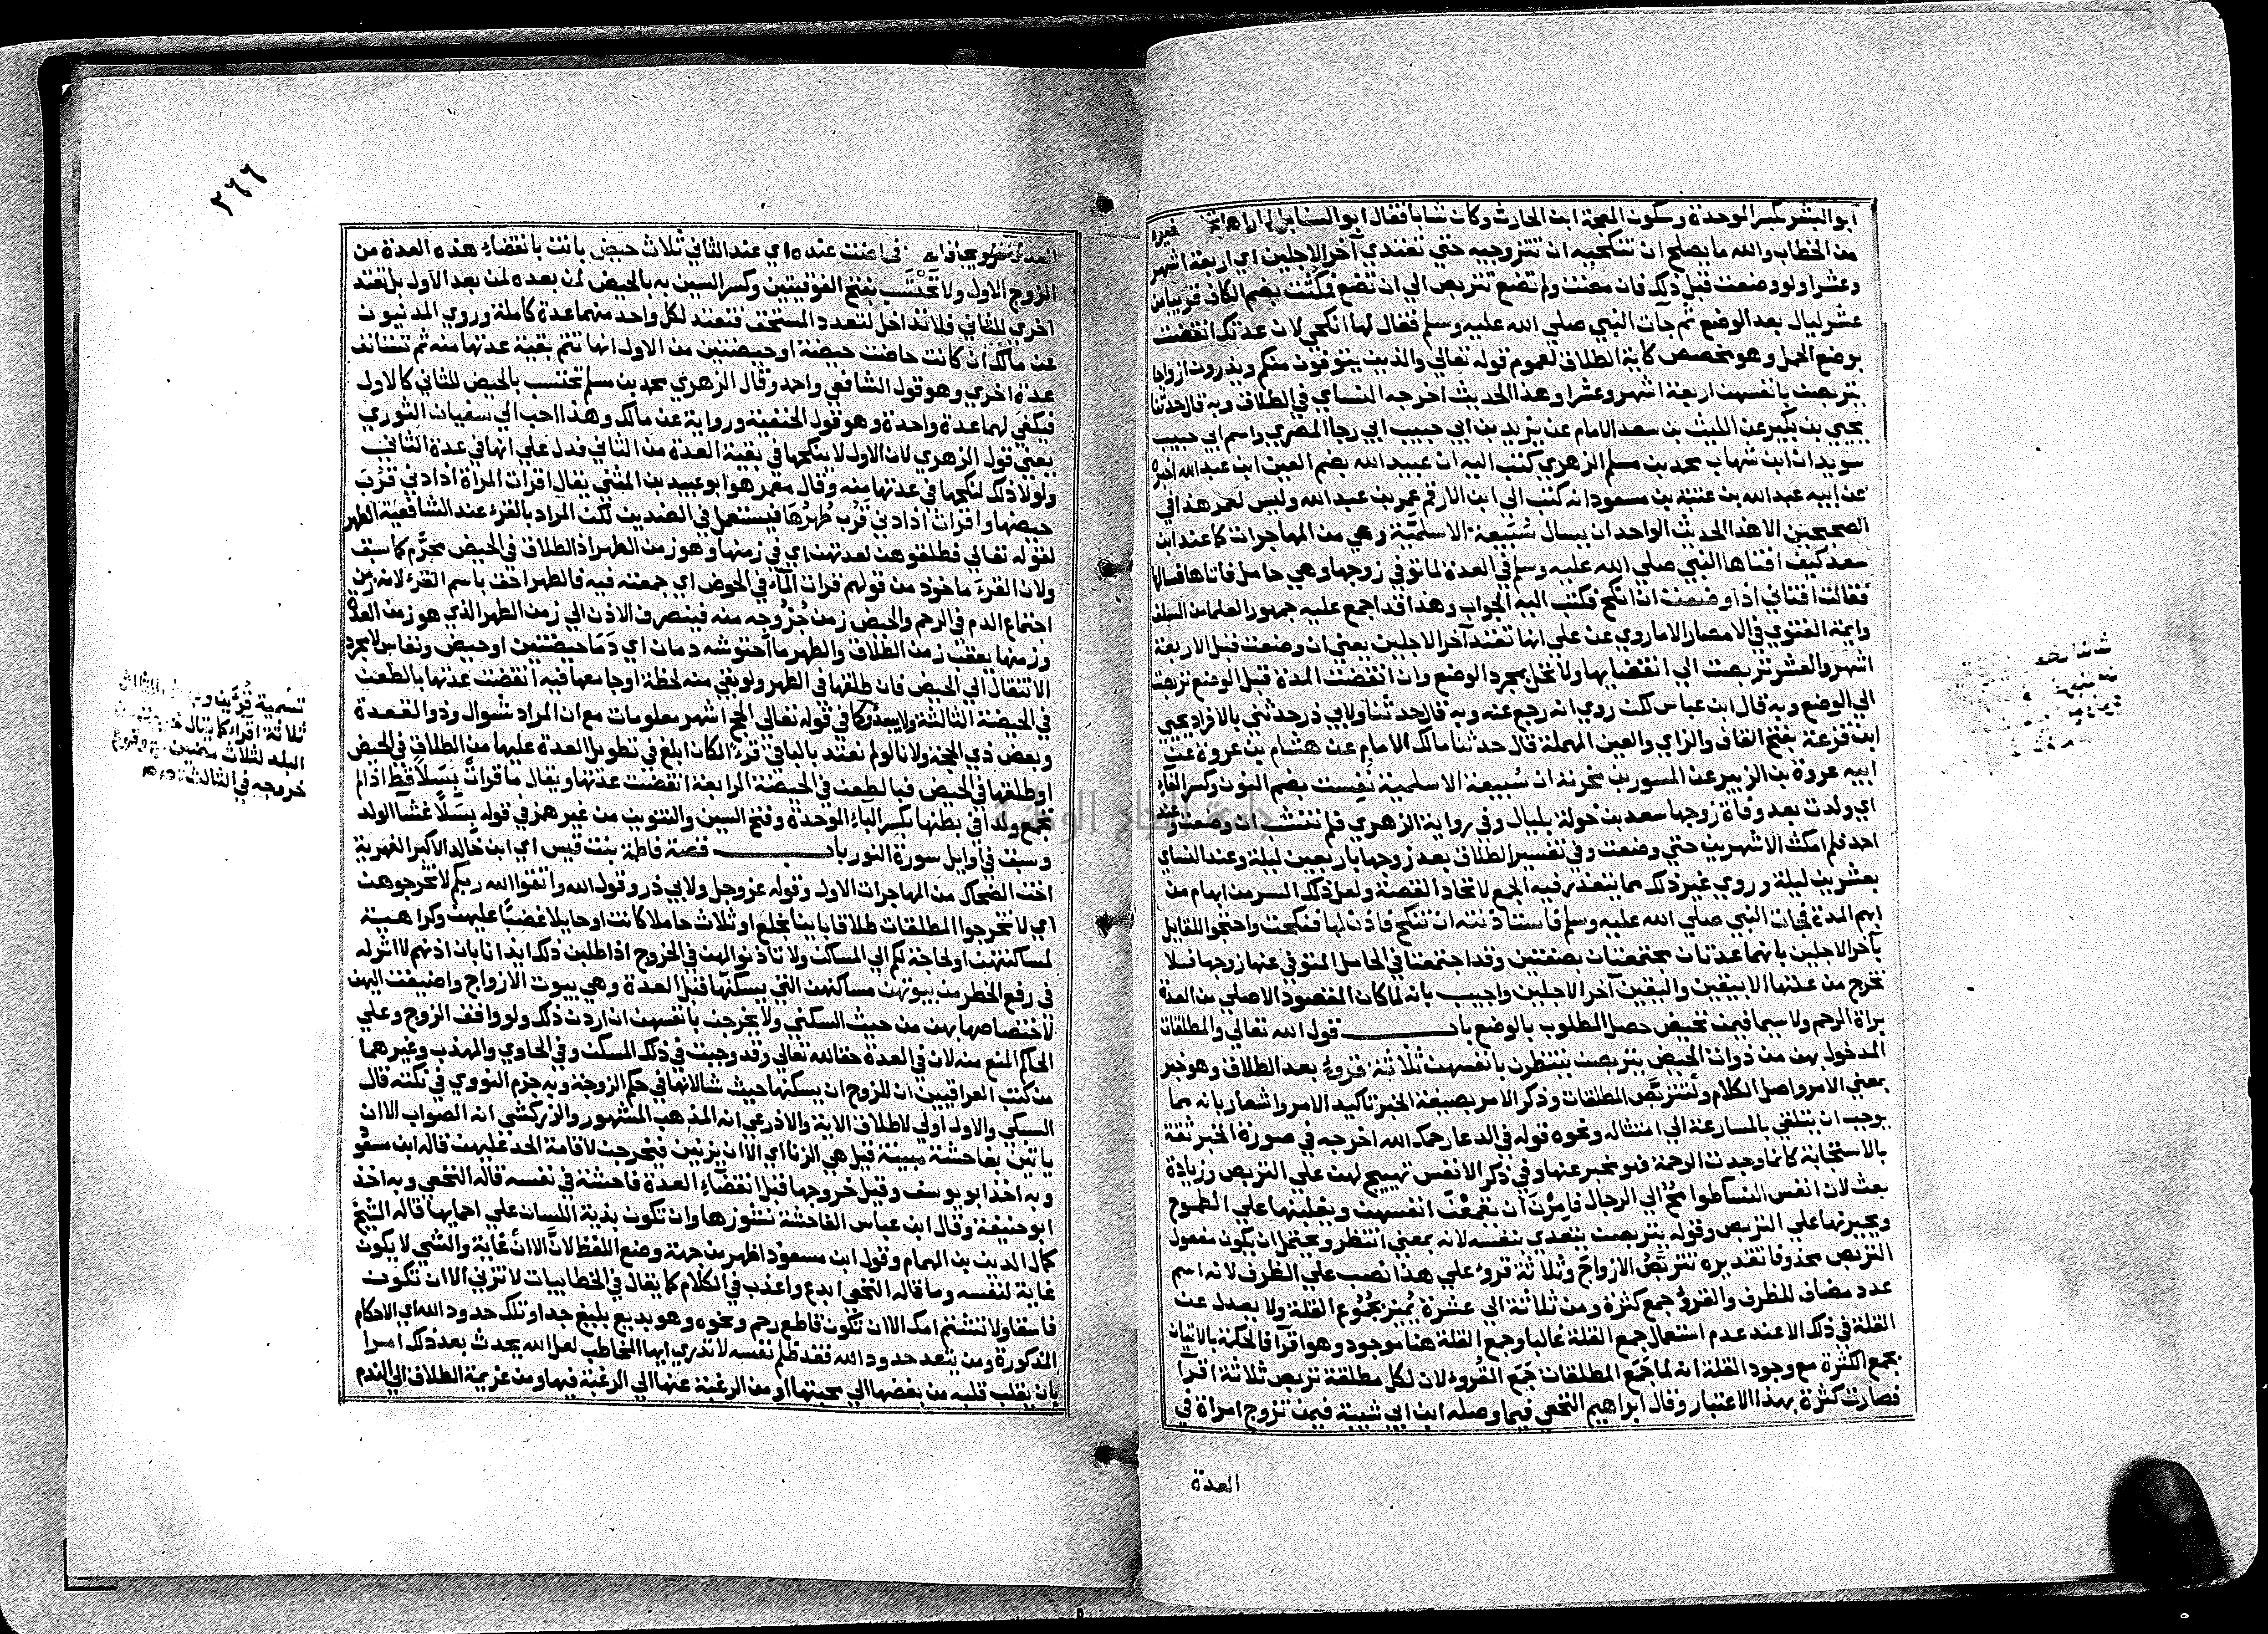 ابو البشر بكسر الموحدة وسكون المعجمة ابن الحارث وكان شابا فقال ابو السنابل
من الخطاب والله ما يصلح ان تنكحيه ان تتزوجيه حتي تعتدي آخر الاجلين اي اربعة اشهر
وعشرا ولو وضعت قبل ذلك فان مضت ولم تضع تتربص الي ان تضع فمكثت بضم الكاف قريبا من
عشر ليال بعد الوضع ثم جآت النبي صلي الله عليه وسلم فقال لها انكحي لان عدتك انقضت
بوضع الحمل وهو مخصص كآية الطلاق لعموم قوله تعالي والذين يتوفون منكم ويذرون ازواجا
يتربصن بانفسهن اربعة اشهر وعشرا وهذا الحديث اخرجه النساي في الطلاق وبه قال حدثنا
يحيي بن بكير عن الليث بن سعد الامام عن يزيد بن ابي حبيب ابي رجا المصري واسم ابي حبيب
سويد ان ابن شهاب محمد بن مسلم الزهري كتب اليه ان عبيد الله بضم العين ابن عبد الله اخبره
عن ابيه عبد الله بن عتبة بن مسعود انه كتب الي ابن الارقم عمر بن عبد الله وليس لعمر هذا في
الصحيحين الا هذا الحديث الواحد ان يسال سُبَيعة الاسلميّة وهي من المهاجرات كما عند ابن
سعد كيف افتاها النبي صلي الله عليه وسلم في العدة لما توفي زوجها وهي حامل فاتاها فسالها
فقالت افتاني اذا وضعت ان انكح فكتب اليه الجواب وهذا قد اجمع عليه جمهور العلما من السلف
وايمة الفتوي في الامصار الا ما روي عن علي انها تعتد آخر الاجلين يعني ان وضعت قبل الاربعة
اشهر والعشر تربصت الي انقضايها ولا تحل بمجرد الوضع وان انقضت المدة قبل الوضع تربصت
الي الوضع وبه قال ابن عباس لكن روي انه رجع عنه وبه قال حدثنا ولابي ذر حدثني بالافراد يحيي
ابن قزعة بفتح القاف والزاي والعين المهملة قال حدثنا مالك الامام عن هشام بن عروة عن
ابيه عروة بن الزبير عن المسور بن مخرمة ان سُبيعة الاسلمية نُفِست بضم النون وكسر الفاء
اي ولدت بعد وفاة زوجها سعد بن خولة بليال وفي رواية الزهري فلم تنشب ان وضعت وعند
احمد فلم امكث الا شهرين حتي وضعت وفي تفسير الطلاق بعد زوجها باربعين ليلة وعند النساي
بعشرين ليلة وروي غير ذلك مما يتعذر فيه الجمع لاتحاد القصة ولعل ذلك السر من ابهام من
ابهم المدة فجات النبي صلي الله عليه وسلم فاستاذنته ان تنكح فاذن لها فنكحت واحتجوا للقايل
بآخر الاجلين بانهما عدتان مجتمعتان بصفتين وقد اجتمعتا في الحامل المتوفي عنها زوجها فلا
تخرج من عدتها الا بيقين واليقين آخر الاجلين واجيب بانه لما كان المقصود الاصلي من العدة
براة الرحم ولا سيما فيمن تحيض حصل المطلوب بالوضع باب قول الله تعالي والمطلقات
المدخول بهن من ذوات الحيض يتربصن ينتظرن بانفسهن ثلاثة قروء بعد الطلاق وهو خبر
بمعني الامر واصل الكلام ولتتربَّص المطلقات وذكر الامر بصيغة الخبر تاكيد الامر واشعار بانه مما
يوجب ان يتلقي بالمسارعة الي امتثاله ونحوه قوله في الدعا رحمك الله اخرجه في صورة الخبر ثقة
بالاستجابة كانما وجدت الرحمة فهو يخبر عنها وفي ذكر الانفس تهييج لهن علي التربص وزيادة
بعث لان انفس النسآ طوامحُ الي الرجال فاُمِرْنَ ان يقمعْن انفسهن ويغلبنها علي الطموح
ويجبرنها علي التربص وقوله يتربصن يتعدي بنفسه لانه بمعني انتظر ويحتمل ان يكون مفعول
التربص محذوفا تقديره يتربَّصن الازواج وثلاثة قروء علي هذا نصب علي الظرف لانه اسم
عدد مضاف للظرف والقروُ جمع كثرة ومن ثلاثة الي عشرة يُميز بجُموع القلة ولا يعدل عن
القلة في ذلك الا عند عدم استعمال جمع القلة غالبا وجمع القلة هنا موجود وهو اقرآ فالحكمة بالاتيان
بجمع الكثرة مع وجود القلة انه لما جَمَع المطلقات جَمَع القُروء لان لكل مطلقة تربص ثلاثة اقرآ
فصارت كثرة بهذا الاعتبار وقال ابراهيم النخعي فيما وصله ابن ابي شيبة فيمن تزوج امراة في
العدة
٢٦٦
فحاضت عنده اي عند الثاني ثلاث حيض بانت بانقضاء هذه العدة من
الزوج الاول ولا تَحْتَسب بفتح الفوقيتين وكسر السين به بالحيض لمن بعده لمن بعد الاول بل تعتد
اخري للثاني فلا تداخل لتعدد المستحق فتعتد لكل واحد منهما عدة كاملة وروي المدنيون
عن مالك ان كانت حاضت حيضة او حيضتين من الاول انها تتم بقية عدتها منه ثم تستانف
عدة اخري وهو قول الشافعي واحمد وقال الزهري محمد بن مسلم تحتسب بالحيض للثاني كالاول
فيكفي لهما عدة واحدة وهو قول الحنفية ورواية عن مالك وهذا احب الي سفيان الثوري
يعني قول الزهري لان الاول لا ينكحها في بقية العدة من الثاني فدل علي انها في عدة الثاني
ولولا ذلك لنكحها في عدتها منه وقال معمر هو ابو عبيد بن المثني يقال اقرات المراة اذا دني قرُبَ
حيضها واقرات اذا دني قرُب طُهرُهَا فيستعمل في الضدين لكن المراد بالقرء عند الشافعية الطهر
لقوله تعالي فطلقوهن لعدتهن اي في زمنها وهو زمن الطهر اذ الطلاق في الحيض محرَّم كما سبق
ولان القرءَ ماخوذ من قولهم قرات المآء في الحوض اي جمعته فيه فالطهر احق باسم القرء لانه زمن
اجتماع الدم في الرحم والحيض زمن خُرُوجه منه فينصرف الاذن الي زمن الطهر الذي هو زمن العدة
وزمنها يعقب زمن الطلاق والطهر ما احتوشه دمان اي دَمَا حيضتين او حيض ونفاس لا مجرد
الانتقال الي الحيض فان طلقها في الطهر ولو بقي منه لحظة او جامعها فيه انقضت عدتها بالطعن
في الحيضة الثالثة ولا يبعد كما في قوله تعالي الحج اشهر معلومات مع ان المراد شوال وذو القعدة
وبعض ذي الحجة ولانا لو لم نعتد بالباقي قرءً لكان ابلغ في تطويل العدة عليها من الطلاق في الحيض
او طلقها في الحيض فبالطعن في الحيضة الرابعة انقضت عدتها ويقال ما قراتْ بِسَلاً قط اذا لم
تجمع ولدا في بطنها بكسر الباء الموحدة وفتح السين والتنوين من غير همز في قوله بِسَلاً غشآ الولد
وسبق في اوايل سورة النور باب قصة فاطمة بنت قيس اي ابن خالد الاكبر الفهرية
اخت الضحاك من المهاجرات الاول وقوله عزوجل ولابي ذر وقول الله واتقوا الله ربكم لا تخرجوهن
اي لا تخرجوا المطلقات طلاقا باينا بخلع او ثلاث حاملا كانت او حايلا غضبًا عليهن وكراهية
لمساكنتهن او لحاجة لكم الي المساكن ولا تاذنوا لهن في الخروج اذا طلبن ذلك ايذانا بان اذنهم لا اثر له
في رفع الخطر من بيوتهن مساكنهن التي يسكنَّها قبل العدة وهي بيوت الازواج واضيفت اليهن
لاختصاصها بهن من حيث السكني ولا يخرجن بانفسهن ان اردن ذلك ولو وافق الزوج وعلي
الحاكم المنع منه لان في العدة حقا لله تعالي وقد وجبت في ذلك المسكن وفي الحاوي والمهذب وغيرهما
من كتب العراقيين ان للزوج ان يسكنها حيث شا لانها في حكم الزوجة وبه جزم النووي في نكته قال
السبكي والاول اولي لاطلاق الاية والاذرعي انه المذهب المشهور والزركشي انه الصواب الا ان
ياتين بفاحشة مبينة قيل هي الزنا اي الا ان يزنين فيخرجن لاقامة الحد عليهن قاله ابن مسعود
وبه اخذ ابو يوسف وقيل خروجها قبل انقضآء العدة فاحشة في نفسه قاله النخعي وبه اخذ
ابو حنيفة وقال ابن عباس الفاحشة نشوزها وان تكون بذية اللسان علي احمايها قاله الشيخ
كمال الدين بن الهمام وقول ابن مسعود اظهر من جهة وضع اللفظ لانَّ الا انْ غاية والشي لا يكون
غاية لنفسه وما قاله النخعي ابدع واعذب في الكلام كما يقال في الخطابيات لا تزني الا ان تكون
فاسقا ولا تشتم امك الا ان تكون قاطع رحم ونحوه وهو بديع بليغ جدا وتلك حدود الله اي الاحكام
المذكورة ومن يتعد حدود الله فقد ظلم نفسه لا تدري ايها المخاطب لعل الله يحدث بعد ذلك امرا
بان يقلب قلبه من بغضها الي محبتها ومن الرغبة عنها الي الرغبة فيها ومن عزيمة الطلاق الي الندم
تسمية قُرْئين
ثلاثة اقراء كما يقال
البلد لثلاث مضين
خروجه في الثالثة
جامعة النجاح الوطنية